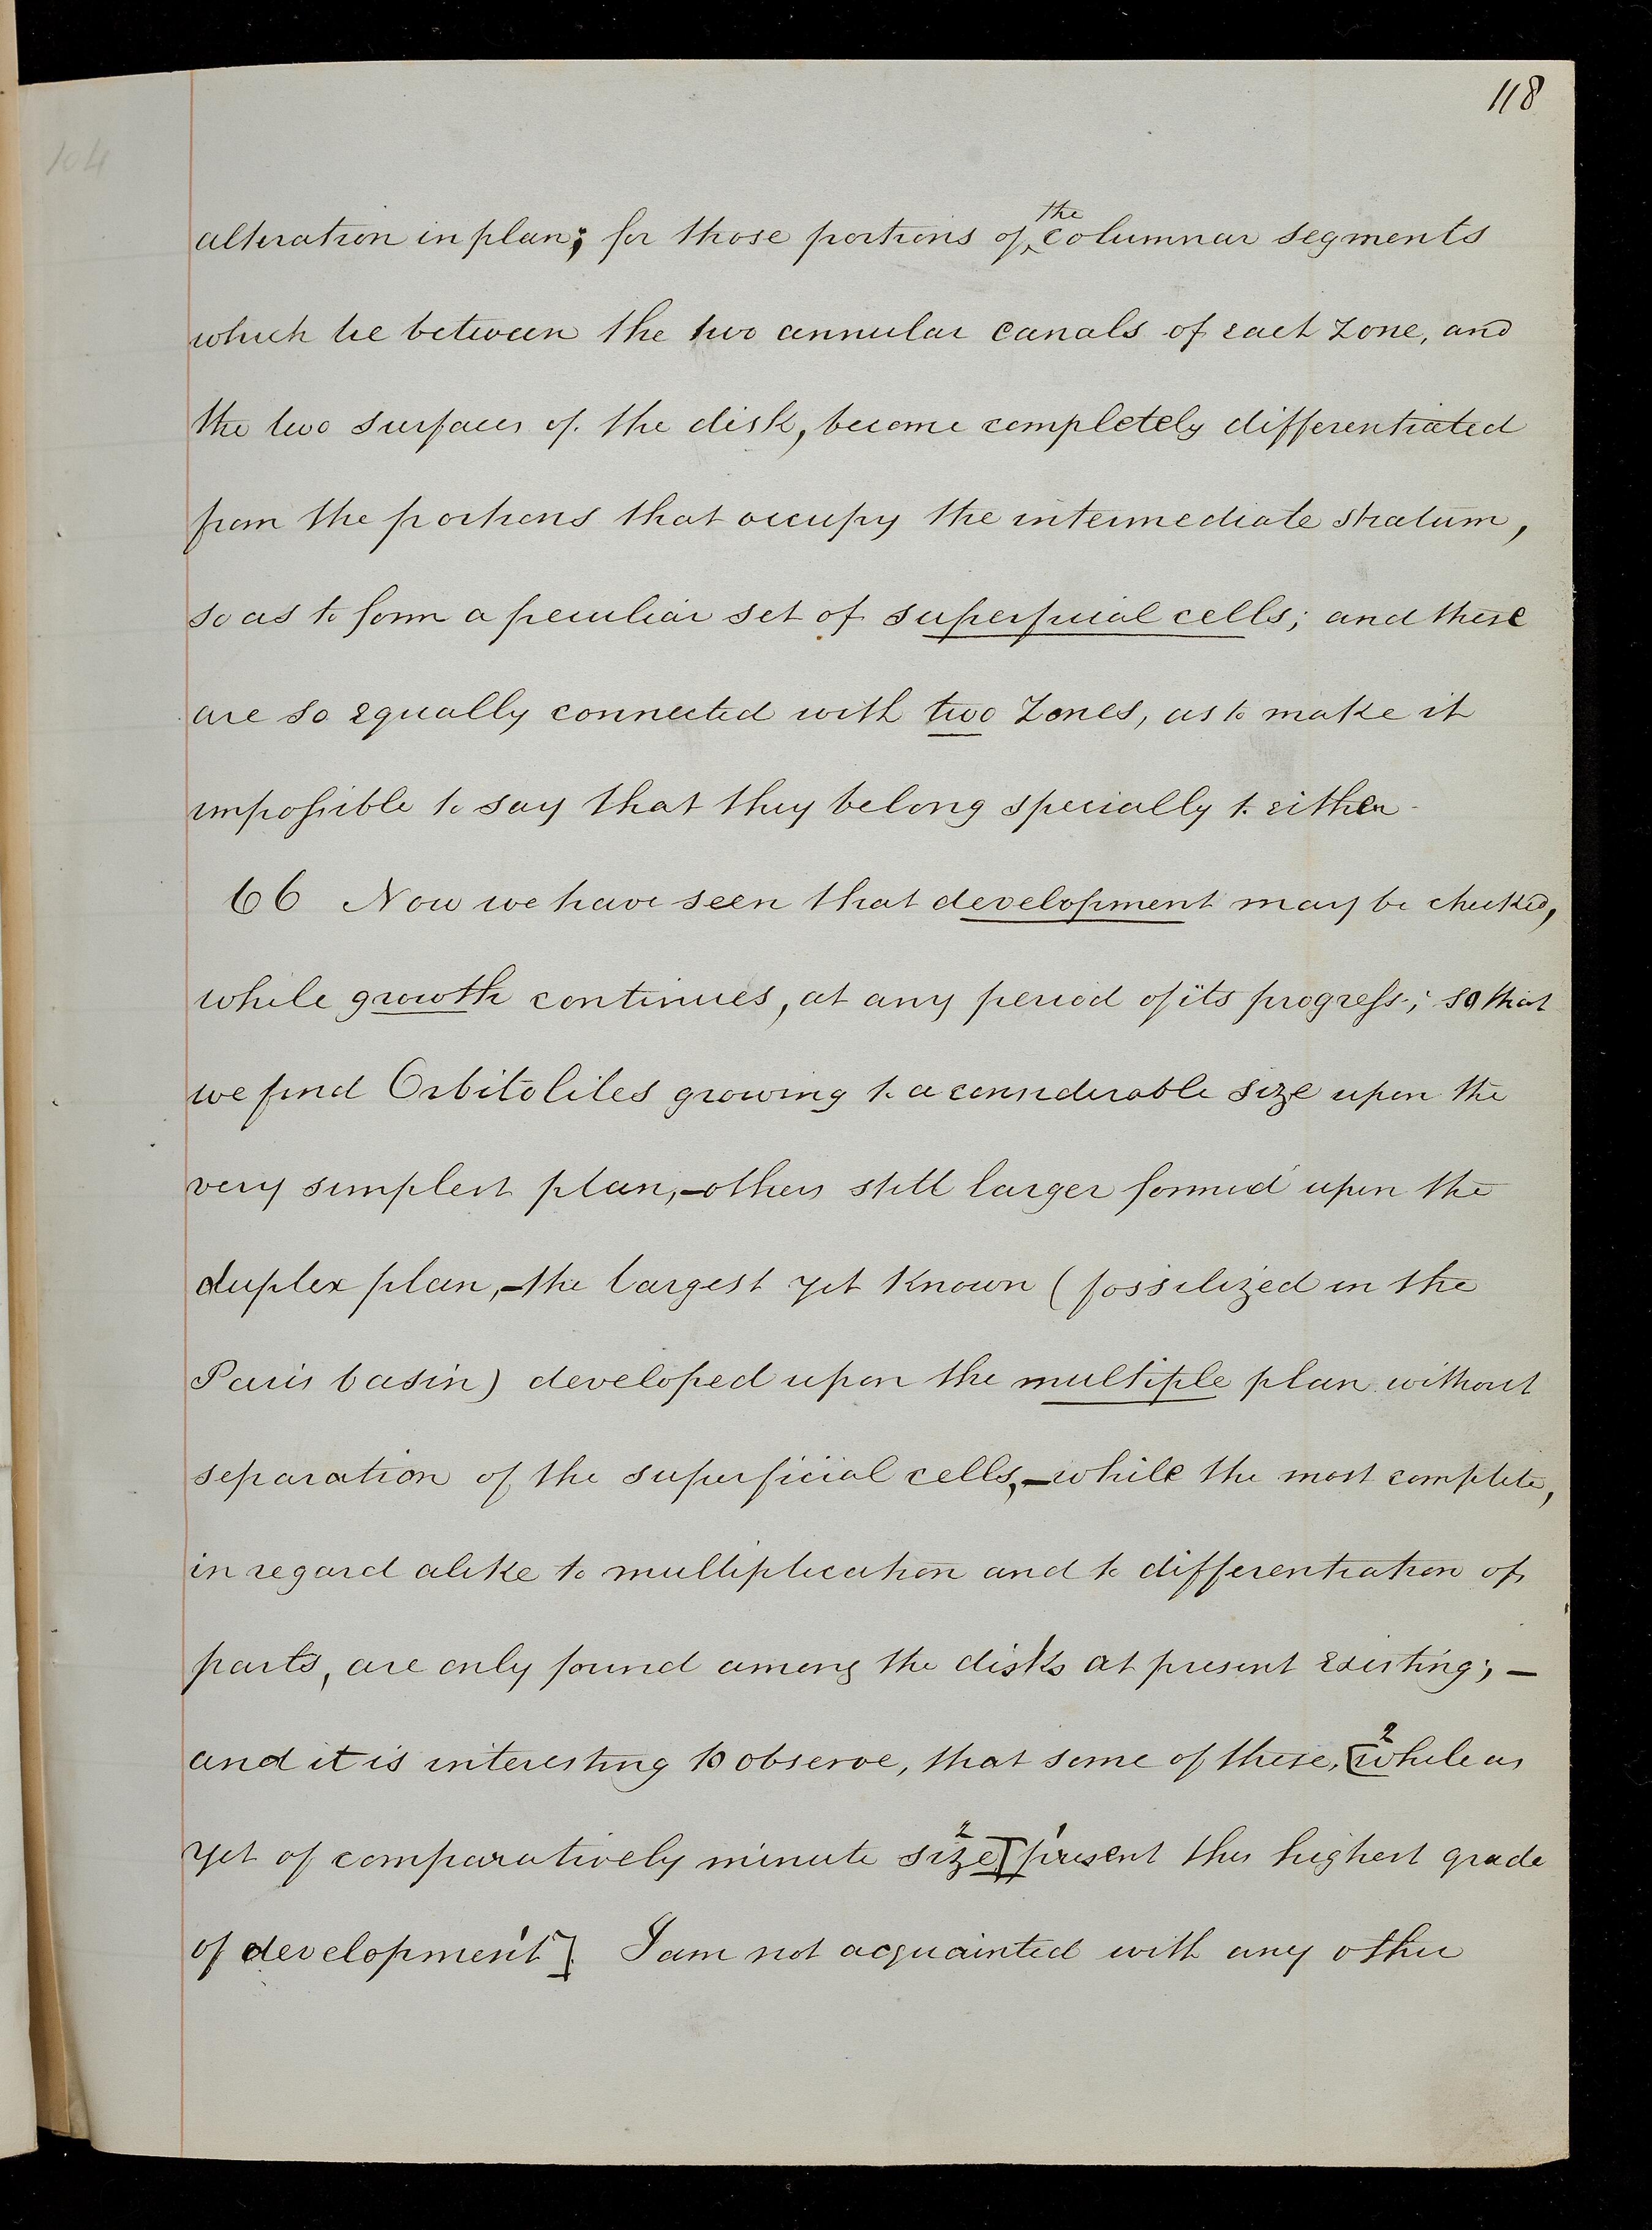 118
104
alteration in plan; for those portions of the columnar segments
which lie between the two annular canals of each zone, and
the two surfaces of the disk, become completely differentiated
from the portions that occupy the intermediate stratum,
so as to form a peculiar set of superficial cells; and these
are so equally connected with two zones, as to make it
impossible to say that they belong specially to either.
66 Now we have seen that development may be checked,
while growth continues, at any period of its progress; so that
we find Orbitolites growing to a considerable size upon the
very simplest plan,—others still larger formed upon the
duplex plan,—the largest yet known (fossilized in the
Paris basin) developed upon the multiple plan without
separation of the superficial cells,—while the most complete,
in regard alike to multiplication and to differentiation of
parts, are only found among the disks at present existing;—
and it is interesting to observe, that some of these, [2 while as
yet of comparatively minute size 2] [1 present the highest grade
of development 1]. I am not acquainted with any other